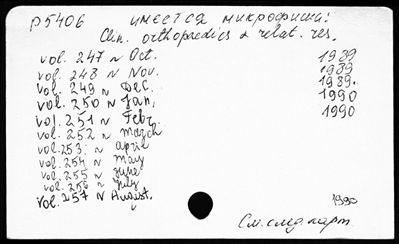 P5406 имеется микрофиша:
Clin. orthopaedics & relat. res.
vol. 247 N Oct. 1989
vol. 248 N Nov. 1989
vol. 249 N Dec. 1989.
vol. 250 N Jan, 1990
vol. 251 N Febr. 1990
vol. 252 N march
vol 253 N april
vol. 254 N may
vol. 255 N june
vol. 256 N july
vol. 257 N August. 1990
См. след. карт.